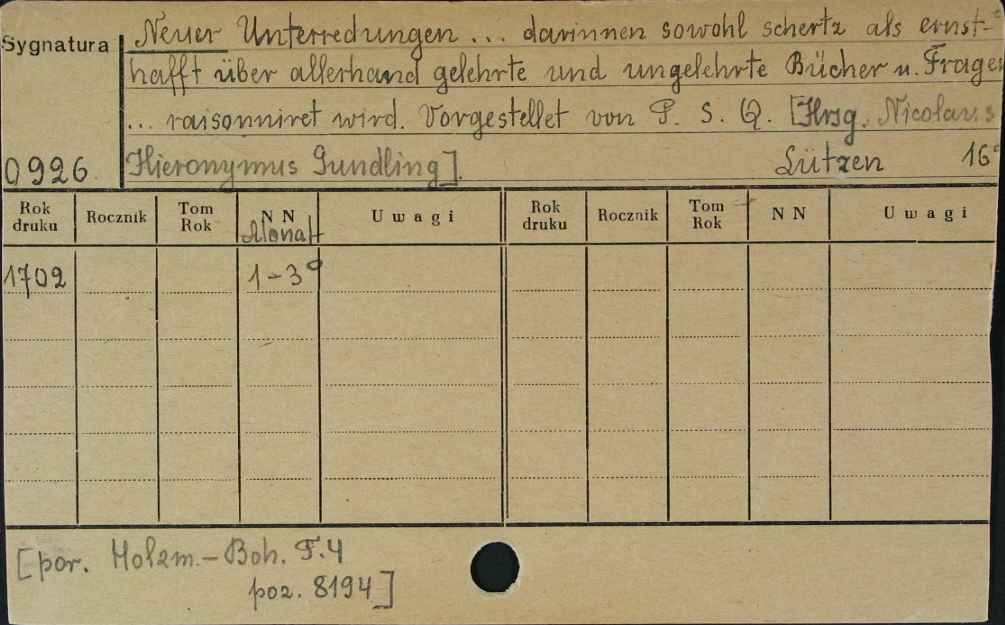 Sygnatura
Neuer Unterredungen ... darinnen sowohl schertz als ernst-
hafft über allerhand gelehrte und ungelehrte Bücher u. Fragen
... raisonniret wird. Vorgestellet von P. S. Q. [Hrsg. Nicolaus
0926 Hieronymus Gundling]. Lützen 16°
Rok druku Rocznik Tom Rok NN Monat Uwagi Rok druku Rocznik Tom Rok NN Uwagi
1702 1-3°
[por. Holzm.-Boh. T.4
poz. 8194]